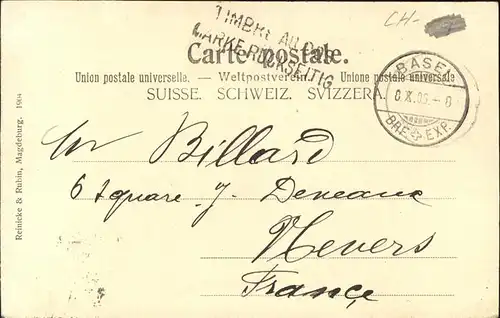 CH-
TIMBRE AU DOS
MARKE RÜCKSEITIG
Carte postale.
Union postale universelle. — Weltpostverein. — Unione postale universale
SUISSE. SCHWEIZ. SVIZZERA.
BASEL
BRF. EXP.
Billard
6 Square J. Deveaux
Nevers
France
Reinicke & Rubin, Magdeburg. 1904